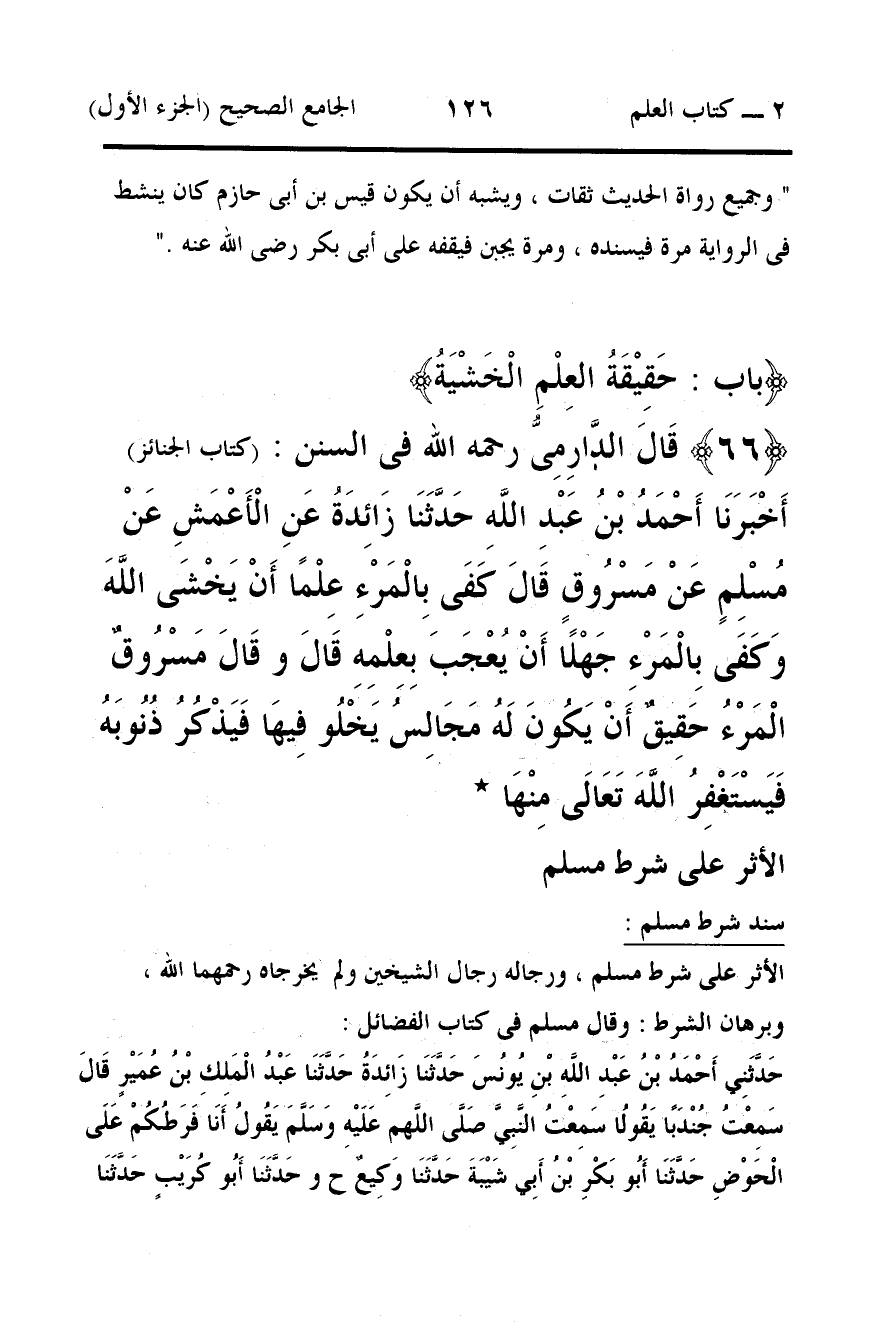 ٢ ـــ كتاب العلم ١٢٦ الجامع الصحيح (الجزء الأول)
" وجميع رواة الحديث ثقات ، ويشبه أن يكون قيس بن أبى حازم كان ينشط
فى الرواية مرة فيسنده ، ومرة يجبن فيقفه على أبى بكر رضى الله عنه ."
﴿باب : حَقِيْقَةُ العِلْمِ الْخَشْيَةُ﴾
﴿٦٦﴾ قَالَ الدَّارِمِىُّ رحمه الله فى السنن : (كتاب الجنائز)
أَخْبَرَنَا أَحْمَدُ بْنُ عَبْدِ اللَّهِ حَدَّثَنَا زَائِدَةُ عَنِ الْأَعْمَشِ عَنْ
مُسْلِمٍ عَنْ مَسْرُوقٍ قَالَ كَفَى بِالْمَرْءِ عِلْمًا أَنْ يَخْشَى اللَّهَ
وَكَفَى بِالْمَرْءِ جَهْلًا أَنْ يُعْجَبَ بِعِلْمِهِ قَالَ و قَالَ مَسْرُوقٌ
الْمَرْءُ حَقِيقٌ أَنْ يَكُونَ لَهُ مَجَالِسُ يَخْلُو فِيهَا فَيَذْكُرُ ذُنُوبَهُ
فَيَسْتَغْفِرُ اللَّهَ تَعَالَى مِنْهَا *
الأثر على شرط مسلم
سند شرط مسلم :
الأثر على شرط مسلم ، ورجاله رجال الشيخين ولم يخرجاه رحمهما الله ،
وبرهان الشرط : وقال مسلم فى كتاب الفضائل :
حَدَّثَنِي أَحْمَدُ بْنُ عَبْدِ اللَّهِ بْنِ يُونُسَ حَدَّثَنَا زَائِدَةُ حَدَّثَنَا عَبْدُ الْمَلِكِ بْنُ عُمَيْرٍ قَالَ
سَمِعْتُ جُنْدَبًا يَقُولُا سَمِعْتُ النَّبِيَّ صَلَّى اللَّهم عَلَيْهِ وَسَلَّمَ يَقُولُ أَنَا فَرَطُكُمْ عَلَى
الْحَوْضِ حَدَّثَنَا أَبُو بَكْرِ بْنُ أَبِي شَيْبَةَ حَدَّثَنَا وَكِيعٌ ح و حَدَّثَنَا أَبُو كُرَيْبٍ حَدَّثَنَا